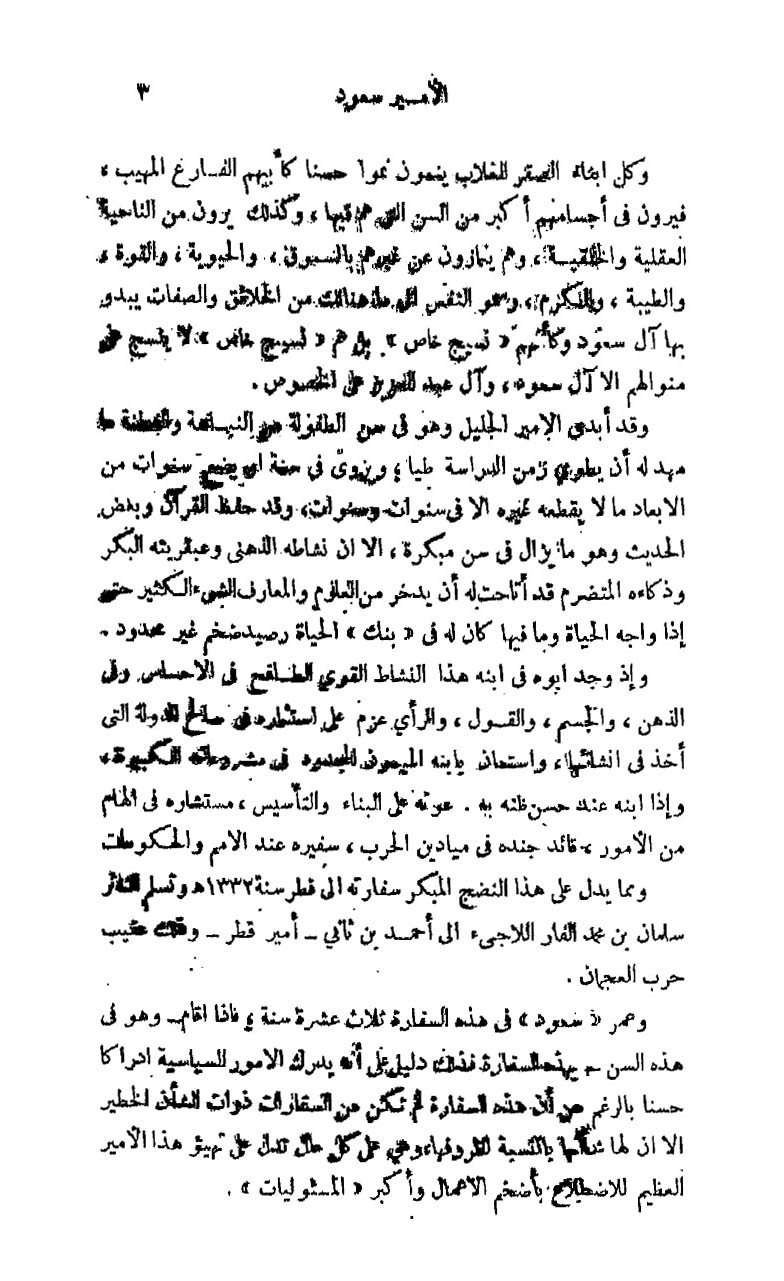 الأمير سعود ٣
وكل ابناء الصقر الغلاب ينمون نموا حسنا كأبيهم الفارع المهيب ،
فيرون فى أجسامهم أكبر من السن التى هم فيها ، وكذلك يرون من الناحية
العقلية والخلقية ، وهم ينمازون عن غيرهم بالسبوق ، والحيوية ، والقوة ،
والطيبة ، والتكرم ، وسمو النفس الى هنالك من الخلائق والصفات يبدو
بها آل سعود وكأنهم « نسيج خاص » بل هم « نسيج خاص » لا ينسج على
منوالهم الا آل سعود ، وآل عبد العزيز على الخصوص .
وقد أبدى الامير الجليل وهو فى سن الطفولة من النباهة والفطنة ما
مهد له أن يطوي زمن الدراسة طيا ، ويزوى فى سنة او بضع سنوات من
الابعاد ما لا يقطعه غيره الا فى سنوات وسنوات ، وقد حفظ القرآن وبعض
الحديث وهو ما يزال فى سن مبكرة ، الا ان نشاطه الذهنى وعبقريته البكر
وذكاءه المتضرم قد أتاحت له أن يدخر من العلوم والمعارف الشىء الكثير حتى
إذا واجه الحياة وما فيها كان له فى « بنك » الحياة رصيد ضخم غير محدود .
وإذ وجد ابوه فى ابنه هذا النشاط القوي الطافح فى الاحساس وفى
الذهن ، والجسم ، والقول ، والرأي عزم على استثماره فى صالح الدولة التى
أخذ فى انشائها ، واستعان بابنه الميمون المجدود فى مشروعاته الكبيرة ،
وإذا ابنه عند حسن ظنه به . عونه على البناء والتأسيس ، مستشاره فى الهام
من الأمور ، قائد جنده فى ميادين الحرب ، سفيره عند الامم والحكومات
ومما يدل على هذا النضج المبكر سفارته الى قطر سنة ١٣٣٢ هـ وتسلم الثائر
سلمان بن محمد الفار اللاجىء الى أحمد بن ثاني ـ أمير قطر ـ وذلك عقيب
حرب العجمان .
وعمر « سعود » فى هذه السفارة ثلاث عشرة سنة ، فاذا اقام ـ وهو فى
هذه السن ـ بهذه السفارة فذلك دليل على أنه يدرك الامور السياسية ادراكا
حسنا بالرغم من أن هذه السفارة لم تكن من السفارات ذوات الشأن الخطير
الا ان لها شأنها بالنسبة لظروفها ، وهي على كل حال تدل على تهيؤ هذا الأمير
العظيم للاضطلاع بأضخم الاعمال وأكبر « المسئوليات » .